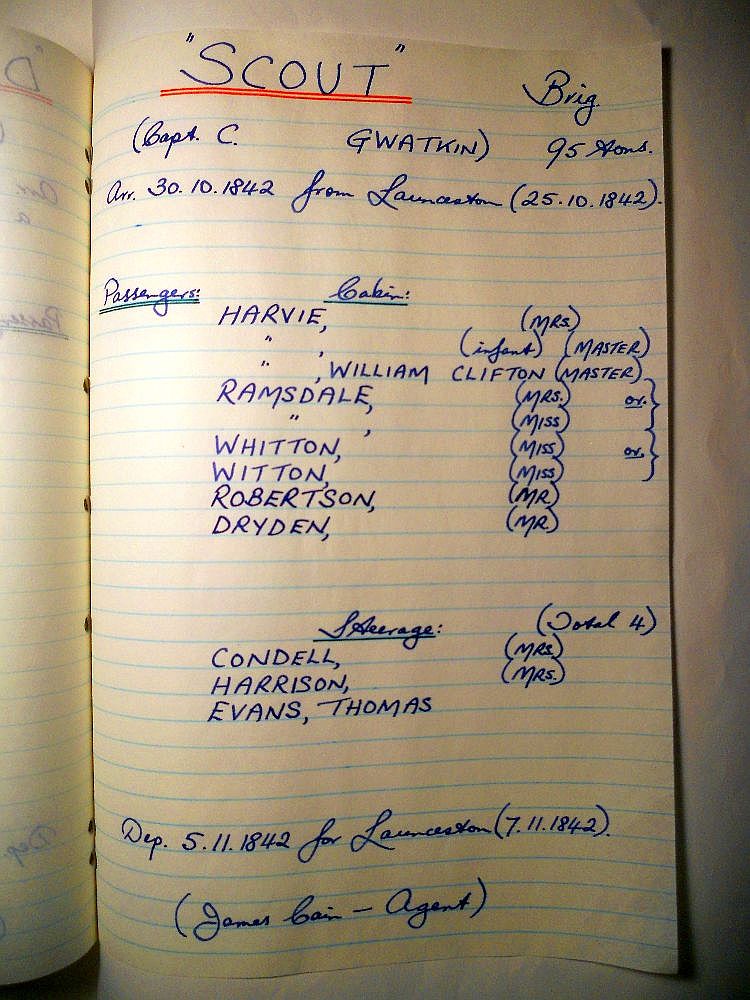 "SCOUT" Brig.
(Capt. C. GWATKIN) 95 tons.
Arr. 30.10.1842 from Launceston (25.10.1842).
Passengers: Cabin:
HARVIE, (MRS.)
" , (infant) (MASTER)
" , WILLIAM CLIFTON (MASTER)
RAMSDALE, (MRS.) or. }
" , (MISS)
WHITTON, (MISS) or. }
WITTON, (MISS)
ROBERTSON, (MR)
DRYDEN, (MR.)
Steerage: (Total 4)
CONDELL, (MRS.)
HARRISON, (MRS.)
EVANS, THOMAS
Dep. 5.11.1842 for Launceston (7.11.1842).
(James Cain - Agent)